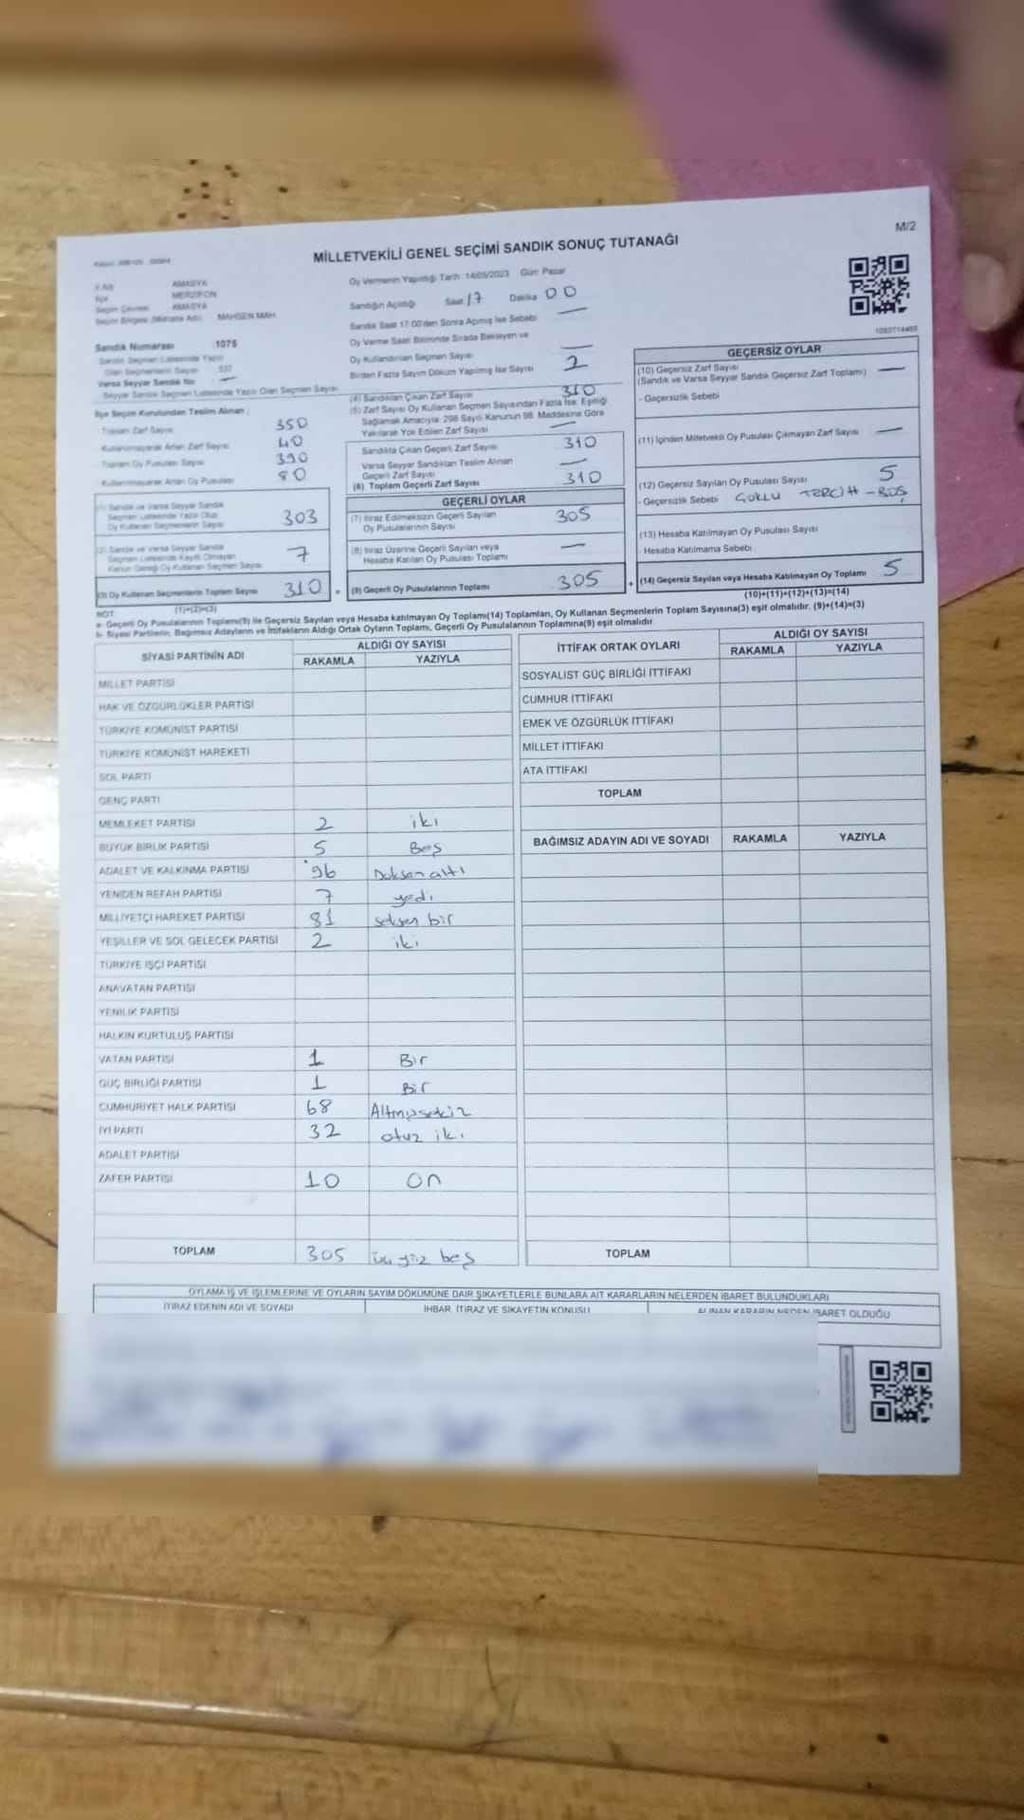 M/2
MİLLETVEKİLİ GENEL SEÇİMİ SANDIK SONUÇ TUTANAĞI
İl Adı AMASYA
İlçe MERZİFON
Seçim Çevresi AMASYA
MAHSEN MAH.
Sandık Numarası 1075
Varsa Seyyar Sandık No
Oy Vermenin Yapıldığı Tarih : 14/05/2023 Gün: Pazar
Sandığın Açıldığı Saat 17 Dakika 00
Sandık Saat 17:00'den Sonra Açılmış İse Sebebi —
Oy Verme Saati Bitiminde Sırada Bekleyen ve
Oy Kullandırılan Seçmen Sayısı —
Birden Fazla Sayım Döküm Yapılmış İse Sayısı 2
İlçe Seçim Kurulundan Teslim Alınan :
Toplam Zarf Sayısı 350
Kullanılmayarak Artan Zarf Sayısı 40
Toplam Oy Pusulası Sayısı 390
Kullanılmayarak Artan Oy Pusulası 80
(4) Sandıktan Çıkan Zarf Sayısı 310
(5) Zarf Sayısı Oy Kullanan Seçmen Sayısından Fazla İse, Eşitliği
Sağlamak Amacıyla 298 Sayılı Kanunun 98. Maddesine Göre
Yakılarak Yok Edilen Zarf Sayısı —
Sandıkta Çıkan Geçerli Zarf Sayısı 310
Varsa Seyyar Sandıktan Teslim Alınan
Geçerli Zarf Sayısı —
(6) Toplam Geçerli Zarf Sayısı 310
(1) Sandık ve Varsa Seyyar Sandık
Seçmen Listesinde Yazılı Olup
Oy Kullanan Seçmenlerin Sayısı 303
(2) Sandık ve Varsa Seyyar Sandık
Seçmen Listesinde Kayıtlı Olmayan
Kanun Gereği Oy Kullanan Seçmen Sayısı 7
(3) Oy Kullanan Seçmenlerin Toplam Sayısı 310
(1)+(2)=(3)
GEÇERLİ OYLAR
(7) İtiraz Edilmeksizin Geçerli Sayılan
Oy Pusulalarının Sayısı 305
(8) İtiraz Üzerine Geçerli Sayılan veya
Hesaba Katılan Oy Pusulası Toplamı —
(9) Geçerli Oy Pusulalarının Toplamı 305
GEÇERSİZ OYLAR
(10) Geçersiz Zarf Sayısı —
(Sandık ve Varsa Seyyar Sandık Geçersiz Zarf Toplamı)
- Geçersizlik Sebebi
(11) İçinden Milletvekili Oy Pusulası Çıkmayan Zarf Sayısı —
(12) Geçersiz Sayılan Oy Pusulası Sayısı 5
- Geçersizlik Sebebi ÇOKLU TERCİH - BOŞ
(13) Hesaba Katılmayan Oy Pusulası Sayısı
Hesaba Katılmama Sebebi
(14) Geçersiz Sayılan veya Hesaba Katılmayan Oy Toplamı 5
(10)+(11)+(12)+(13)=(14)
NOT:
a- Geçerli Oy Pusulalarının Toplamı(9) ile Geçersiz Sayılan veya Hesaba katılmayan Oy Toplamı(14) Toplamları, Oy Kullanan Seçmenlerin Toplam Sayısına(3) eşit olmalıdır. (9)+(14)=(3)
b- Siyasi Partilerin, Bağımsız Adayların ve İttifakların Aldığı Ortak Oyların Toplamı, Geçerli Oy Pusulalarının Toplamına(9) eşit olmalıdır
SİYASİ PARTİNİN ADI ALDIĞI OY SAYISI
RAKAMLA YAZIYLA
MİLLET PARTİSİ
HAK VE ÖZGÜRLÜKLER PARTİSİ
TÜRKİYE KOMÜNİST PARTİSİ
TÜRKİYE KOMÜNİST HAREKETİ
SOL PARTİ
GENÇ PARTİ
MEMLEKET PARTİSİ 2 iki
BÜYÜK BİRLİK PARTİSİ 5 Beş
ADALET VE KALKINMA PARTİSİ 96 Doksan altı
YENİDEN REFAH PARTİSİ 7 yedi
MİLLİYETÇİ HAREKET PARTİSİ 81 seksen bir
YEŞİLLER VE SOL GELECEK PARTİSİ 2 iki
TÜRKİYE İŞÇİ PARTİSİ
ANAVATAN PARTİSİ
YENİLİK PARTİSİ
HALKIN KURTULUŞ PARTİSİ
VATAN PARTİSİ 1 Bir
GÜÇ BİRLİĞİ PARTİSİ 1 Bir
CUMHURİYET HALK PARTİSİ 68 Altmışsekiz
İYİ PARTİ 32 otuz iki
ADALET PARTİSİ
ZAFER PARTİSİ 10 on
TOPLAM 305 üç yüz beş
İTTİFAK ORTAK OYLARI ALDIĞI OY SAYISI
RAKAMLA YAZIYLA
SOSYALİST GÜÇ BİRLİĞİ İTTİFAKI
CUMHUR İTTİFAKI
EMEK VE ÖZGÜRLÜK İTTİFAKI
MİLLET İTTİFAKI
ATA İTTİFAKI
TOPLAM
BAĞIMSIZ ADAYIN ADI VE SOYADI RAKAMLA YAZIYLA
TOPLAM
OYLAMA İŞ VE İŞLEMLERİNE VE OYLARIN SAYIM DÖKÜMÜNE DAİR ŞİKAYETLERLE BUNLARA AİT KARARLARIN NELERDEN İBARET BULUNDUKLARI
İTİRAZ EDENİN ADI VE SOYADI İHBAR, İTİRAZ VE ŞİKAYETİN KONUSU ALINAN KARARIN NEDEN İBARET OLDUĞU